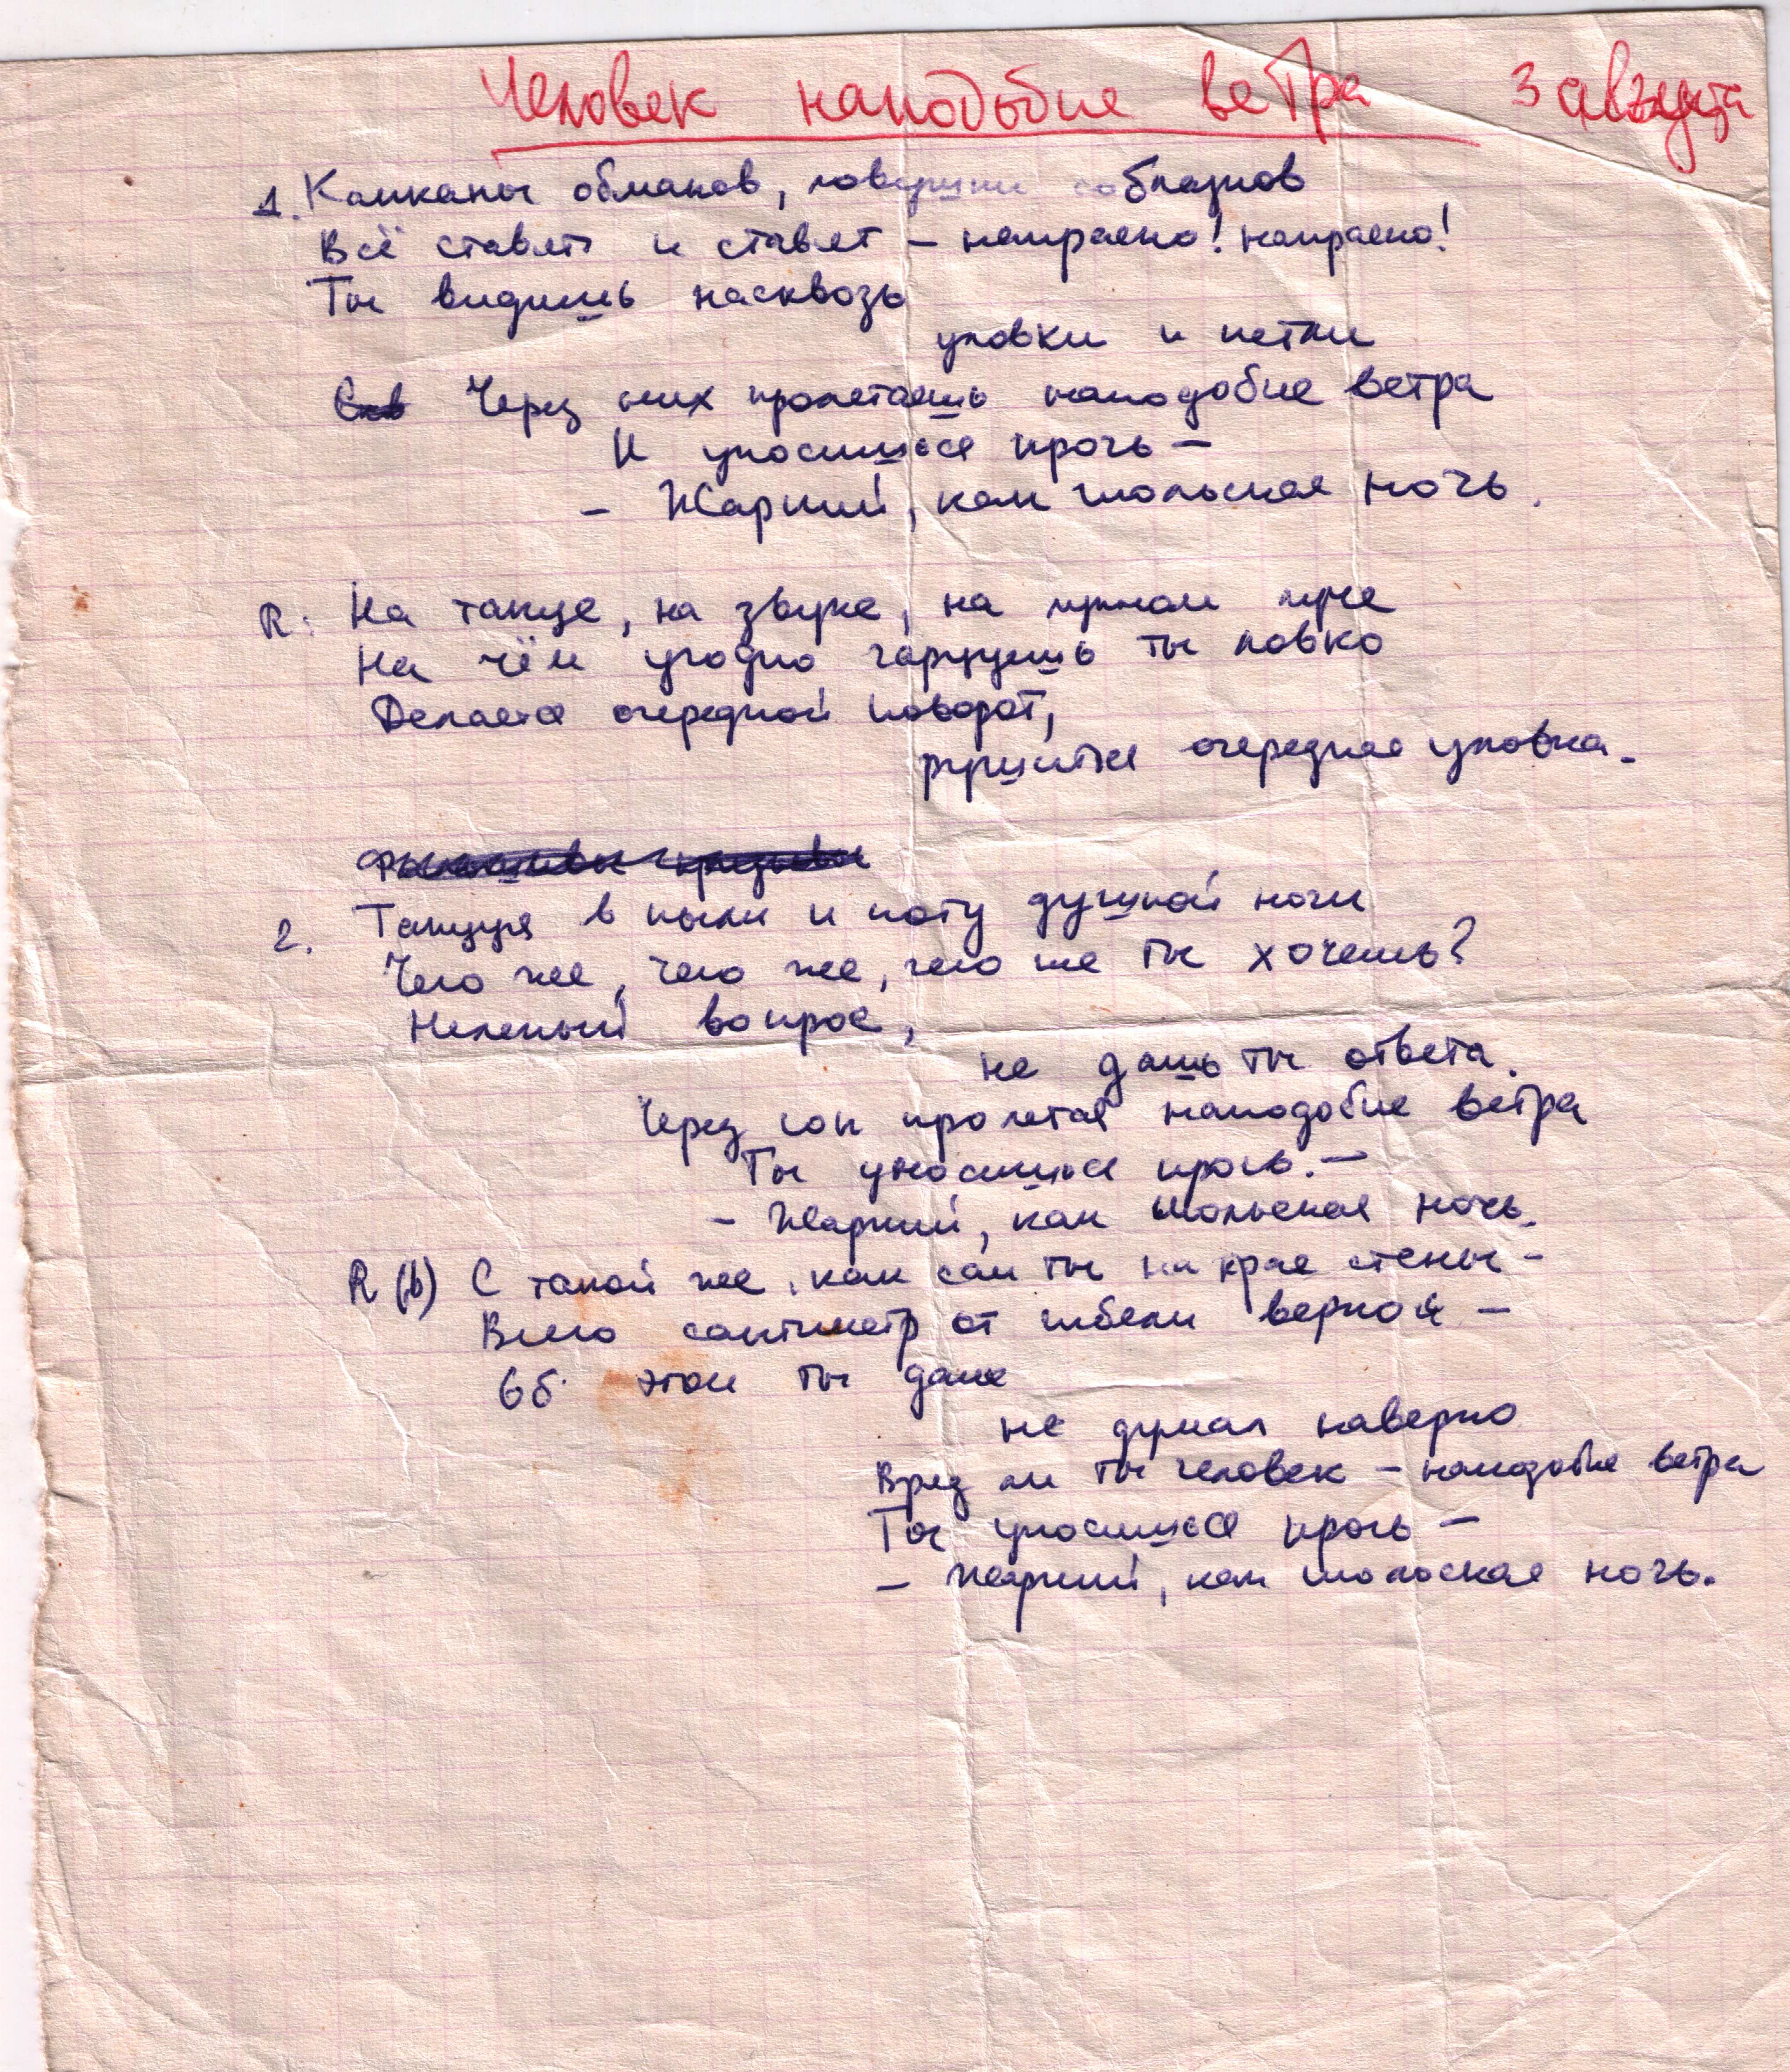 Человек наподобие ветра 3 августа
1. Капканы обманов, ловушки соблазнов
Всё ставят и ставят – напрасно! напрасно!
Ты видишь насквозь
уловки и петли
Через них пролетаешь наподобие ветра
И уносишься прочь –
– Жаркий, как июльская ночь.
R: На танце, на звуке, на лунном луче
На чём угодно гарцуешь ты ловко
Делается очередной поворот,
рушится очередная уловка.
2. Танцуя в пыли и поту душной ночи
Чего же, чего же, чего же ты хочешь?
Нелепый вопрос,
не дашь ты ответа.
Через сон пролетая наподобие ветра
Ты уносишься прочь. –
– Жаркий, как июльская ночь.
R (b) С такой же, как сам ты на крае стены –
Всего сантиметр от гибели верной –
Об этом ты даже
не думал наверно
Вряд ли ты человек – наподобие ветра
Ты уносишься прочь –
– Жаркий, как июльская ночь.